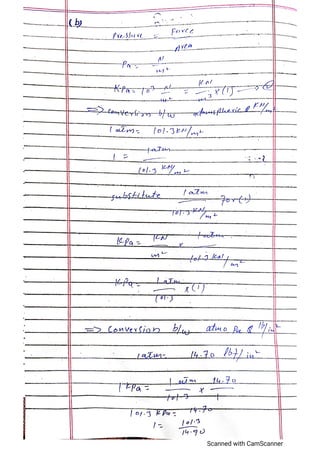 (b)
Pressure = Force
Area
Pa = N
m²
KPa = 10³ N/m² = KN/m² x (1)
=> conversion b/w atmospheric & KN/m²
1 atm = 101.3 KN/m²
1 = 1 atm
101.3 KN/m²
substitute 1 atm / 101.3 KN/m² for (1)
KPa = KN/m² x 1 atm / 101.3 KN/m²
KPa = 1 atm / 101.3 x (1)
=> conversion b/w atmo Pre & lb/in²
1 atm = 14.70 lbf/in²
1 KPa = 1 atm / 101.3 x 14.70 / 1
101.3 KPa = 14.70
1 = 101.3
14.90
Scanned with CamScanner